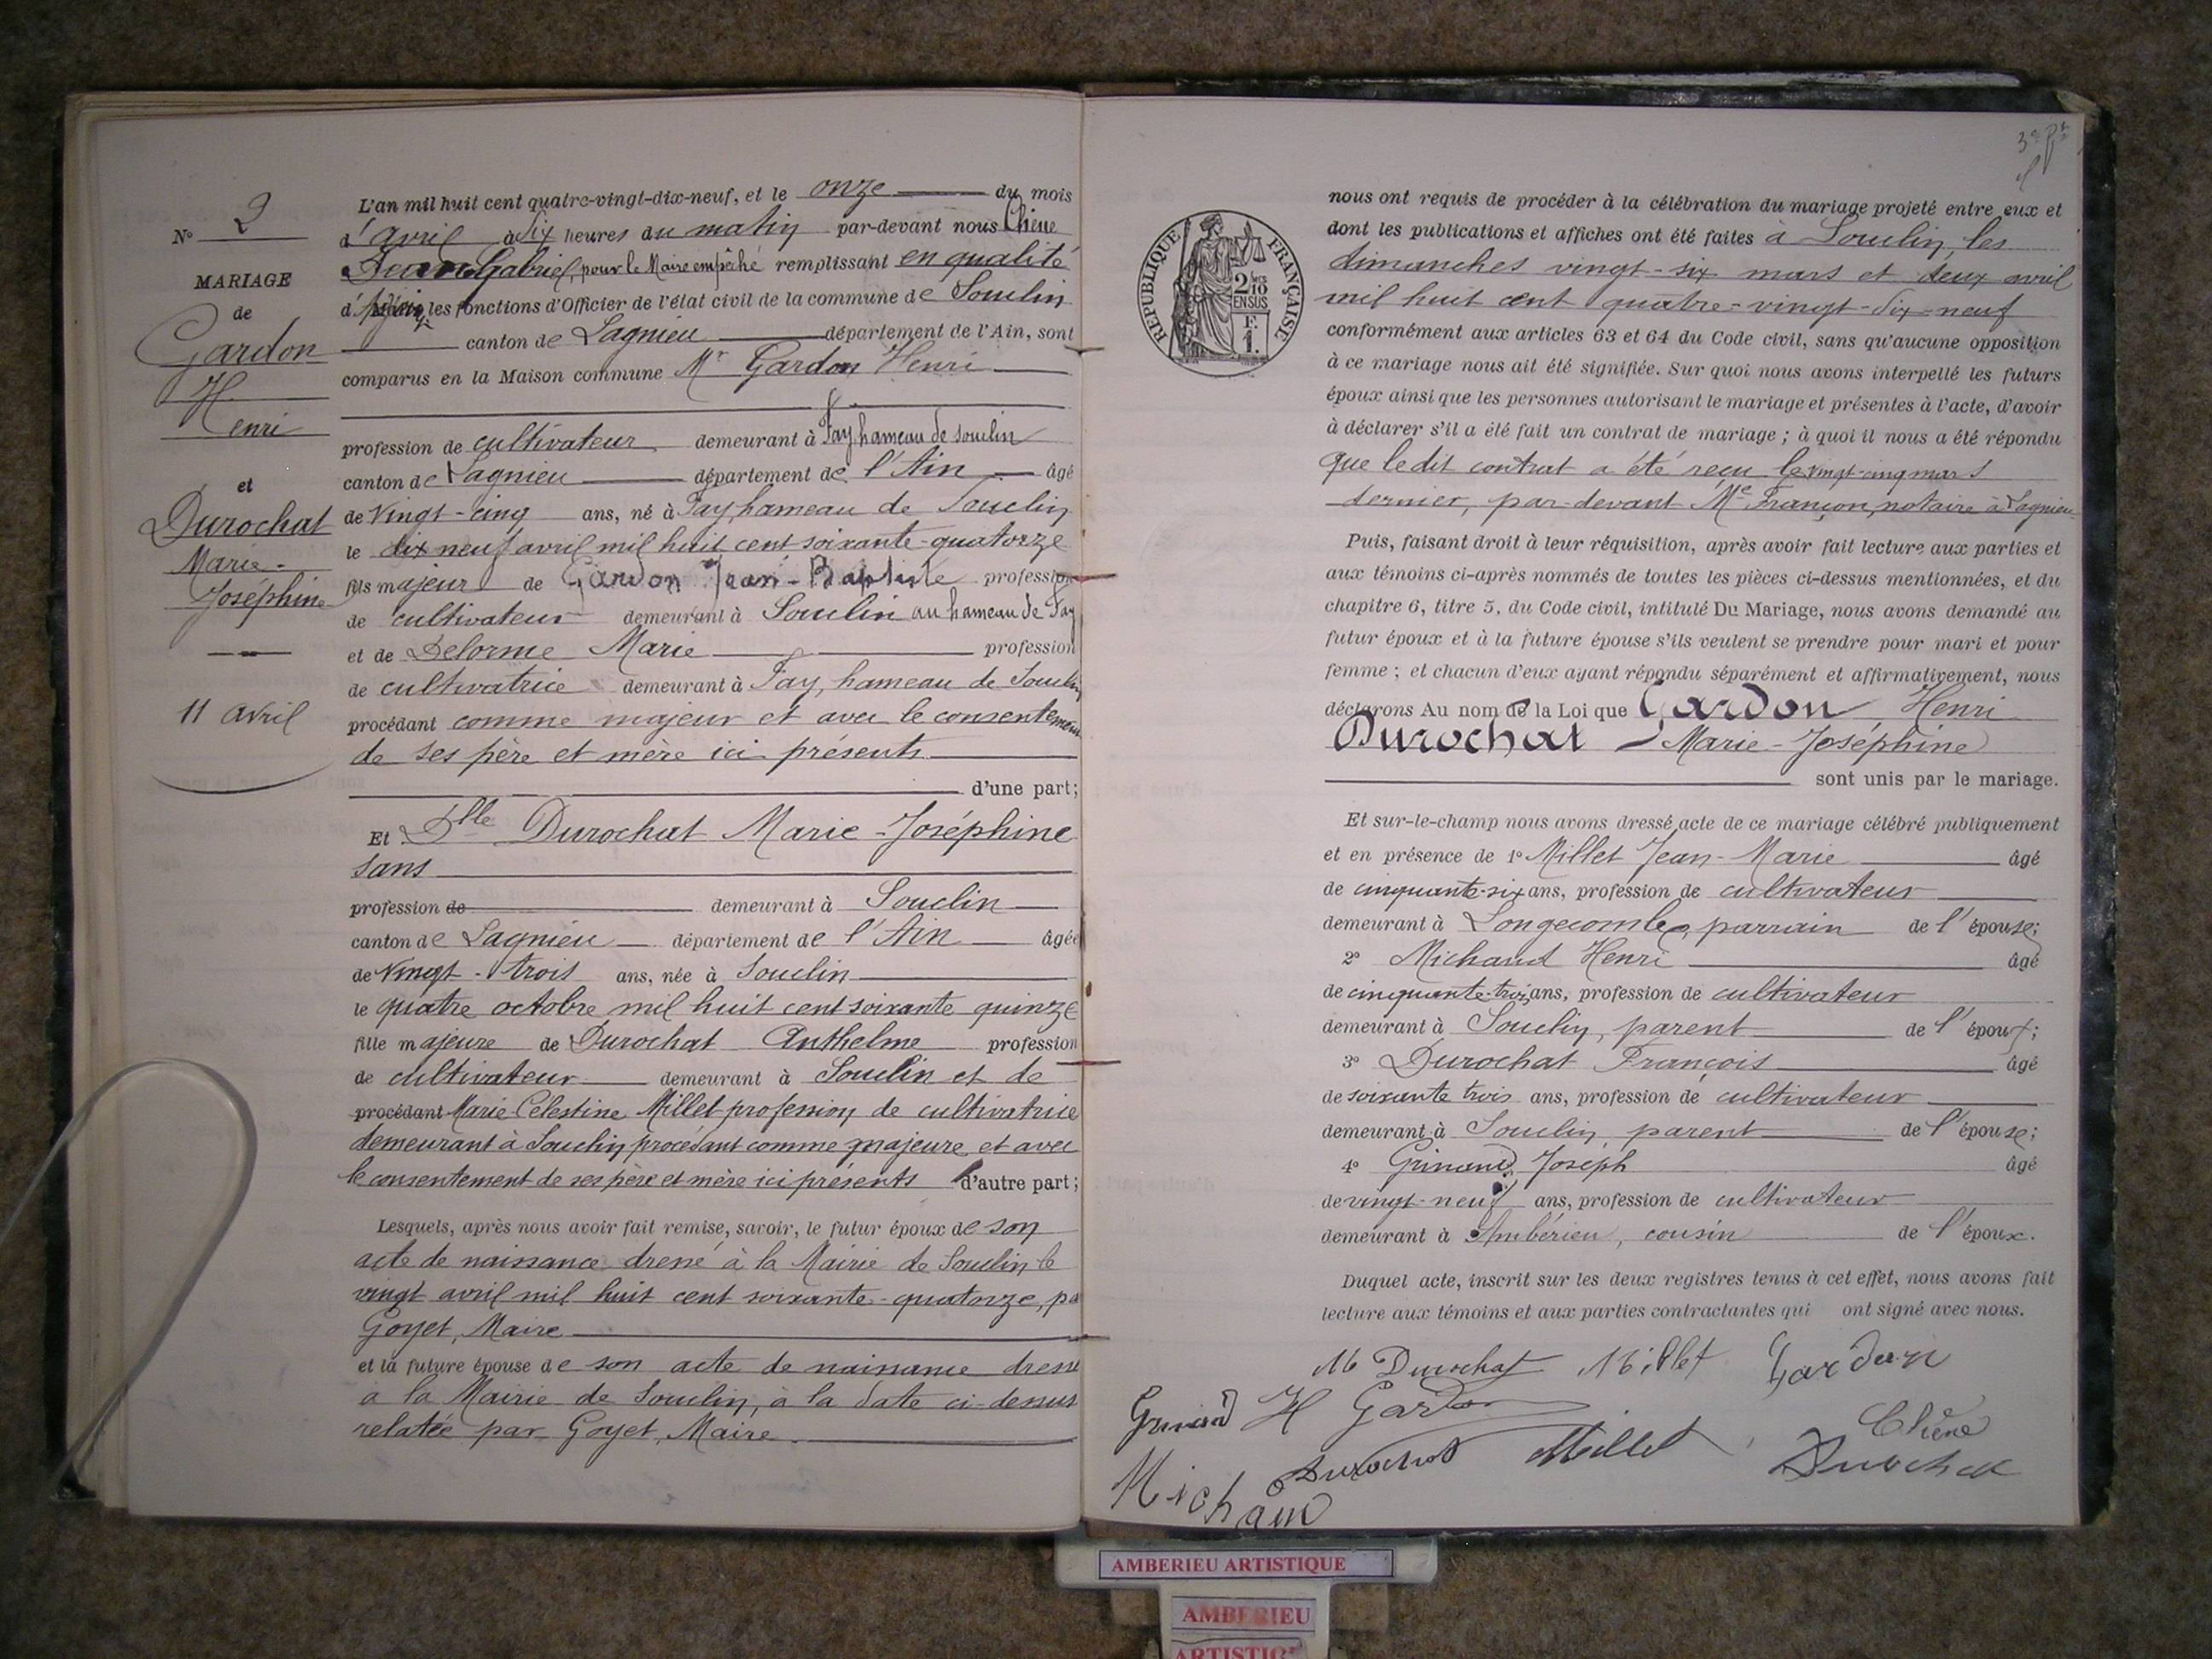 N° 2
MARIAGE
de
Gardon
H
Henri
et
Durochat
Marie-
Joséphine
11 avril
L'an mil huit cent quatre-vingt-dix-neuf, et le onze du mois
d'avril à dix heures du matin par-devant nous Chêne
Jean Gabriel, pour le Maire empêché remplissant en qualité
d'adjoint les fonctions d'Officier de l'état civil de la commune de Souclin
canton de Lagnieu département de l'Ain, sont
comparus en la Maison commune Mr Gardon Henri
profession de cultivateur demeurant à Fay hameau de Souclin
canton de Lagnieu département de l'Ain âgé
de vingt-cinq ans, né à Fay, hameau de Souclin
le dix neuf avril mil huit cent soixante-quatorze
fils majeur de Gardon Jean-Baptiste profession
de cultivateur demeurant à Souclin au hameau de Fay
et de Delorme Marie profession
de cultivatrice demeurant à Fay, hameau de Souclin
procédant comme majeur et avec le consentement
de ses père et mère ici présents
d'une part;
Et Dlle Durochat Marie-Joséphine
sans
profession de demeurant à Souclin
canton de Lagnieu département de l'Ain âgée
de vingt-trois ans, née à Souclin
le quatre octobre mil huit cent soixante quinze
fille majeure de Durochat Anthelme profession
de cultivateur demeurant à Souclin et de
procédant Marie Célestine Millet profession de cultivatrice
demeurant à Souclin procédant comme majeure et avec
le consentement de ses père et mère ici présents d'autre part;
Lesquels, après nous avoir fait remise, savoir, le futur époux de son
acte de naissance dressé à la Mairie de Souclin le
vingt avril mil huit cent soixante-quatorze, pa
Goyet, Maire
et la future épouse de son acte de naissance dressé
à la Mairie de Souclin, à la date ci-dessus
relatée par Goyet, Maire
RÉPUBLIQUE FRANÇAISE
2/10
EN SUS
F.
1.
nous ont requis de procéder à la célébration du mariage projeté entre eux et
dont les publications et affiches ont été faites à Souclin, les
dimanches vingt-six mars et deux avril
mil huit cent quatre-vingt-dix-neuf
conformément aux articles 63 et 64 du Code civil, sans qu'aucune opposition
à ce mariage nous ait été signifiée. Sur quoi nous avons interpellé les futurs
époux ainsi que les personnes autorisant le mariage et présentes à l'acte, d'avoir
à déclarer s'il a été fait un contrat de mariage; à quoi il nous a été répondu
que ledit contrat a été reçu le vingt-cinq mars
dernier, par-devant Me Françon, notaire à Lagnieu
Puis, faisant droit à leur réquisition, après avoir fait lecture aux parties et
aux témoins ci-après nommés de toutes les pièces ci-dessus mentionnées, et du
chapitre 6, titre 5, du Code civil, intitulé Du Mariage, nous avons demandé au
futur époux et à la future épouse s'ils veulent se prendre pour mari et pour
femme; et chacun d'eux ayant répondu séparément et affirmativement, nous
déclarons Au nom de la Loi que Gardon Henri
Durochat - Marie-Joséphine
sont unis par le mariage.
Et sur-le-champ nous avons dressé acte de ce mariage célébré publiquement
et en présence de 1° Millet Jean-Marie âgé
de cinquante-six ans, profession de cultivateur
demeurant à Longecombe, parrain de l'épouse;
2° Michaud Henri âgé
de cinquante-trois ans, profession de cultivateur
demeurant à Souclin, parent de l'époux;
3° Durochat François âgé
de soixante trois ans, profession de cultivateur
demeurant à Souclin, parent de l'épouse;
4° Grinand Joseph âgé
de vingt-neuf ans, profession de cultivateur
demeurant à Ambérieu, cousin de l'époux.
Duquel acte, inscrit sur les deux registres tenus à cet effet, nous avons fait
lecture aux témoins et aux parties contractantes qui ont signé avec nous.
M Durochat Millet Gardon
Grinand H Gardon Chêne
Durochat Millet Durochat
Michaud
AMBERIEU ARTISTIQUE
AMBERIEU
ARTISTIQ